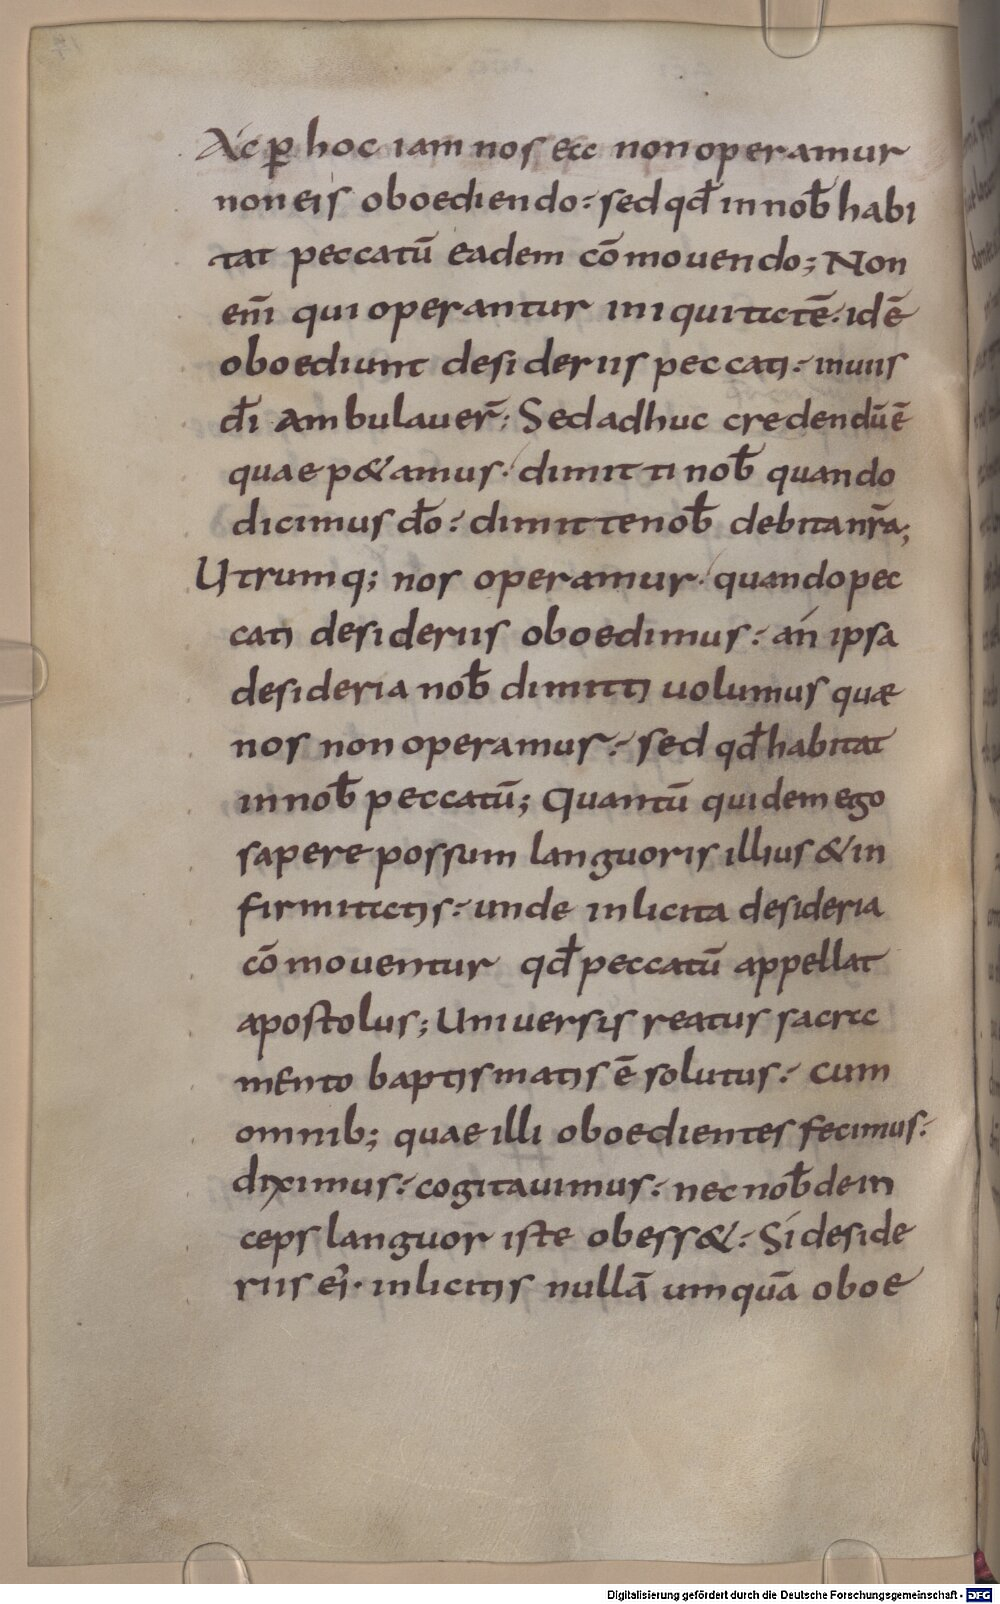 Ac p̄ hoc iam nos ea non operamur
non eis oboediendo: sed qđ in nob̄ habi
tat peccatū eadem cōmouendo; Non
em̄ qui operantur iniquitatē. idē
oboediunt desideriis peccati: inuiis
d̄i ambulauer̄; Sed adhuc credendū ē
quae p&amus. dimitti nob̄ quando
dicimus d̄o: dimitte nob̄ debita nr̄a;
Utrumq; nos operamur. quando pec
cati desideriis oboedimus: an ipsa
desideria nob̄ dimitti uolumus quæ
nos non operamus: sed qđ habitat
in nob̄ peccatū; Quantū quidem ego
sapere possum languoris illius & in
firmitatis: unde inlicita desideria
cōmouentur qđ peccatū appellat
apostolus; Uniuersis reatus sacra
mento baptismatis ē solutus: cum
omnib; quae illi oboedientes fecimus:
diximus: cogitauimus: nec nob̄ dein
ceps languor iste obess&: Si deside
riis ei. inlicitis nullā umquā oboe
Digitalisierung gefördert durch die Deutsche Forschungsgemeinschaft - DFG